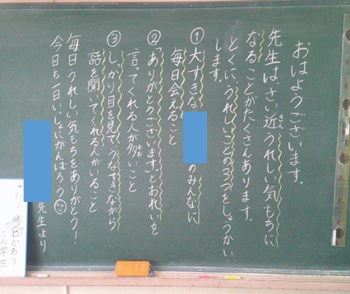 おはようございます。
先生は、さい近うれしい気もちに
なることがたくさんあります。
とくに、うれしいことの3つをしょうかい
します。
①大すきな
のみんなに
毎日会えること
②「ありがとうございます」とおれいを
言ってくれる人が
こと
③しっかり目を見て、うなずきながら
話を聞いてくれる人がいること
毎日うれしい気もちをありがとう!
今日も一日いっしょにがんばろう
先生より